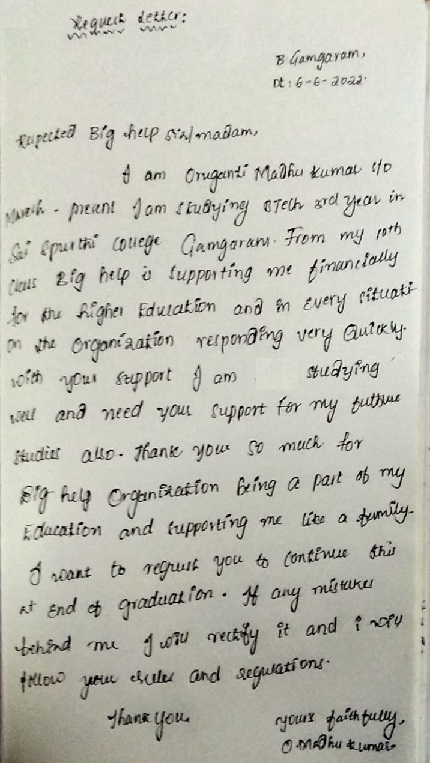 Request Letter:
B Gangaram,
Dt: 6-6-2022.
Respected Big help sir/madam,
I am Oruganti Madhu Kumar S/o
Maresh. present I am studying BTech 3rd year in
Sai Spurthi College Gangaram. From my 10th
class Big help is supporting me financially
for the higher Education and in every situati
on the organization responding very Quickly.
with your support I am studying
well and need your support for my future
studies also. Thank you so much for
Big help Organization being a part of my
Education and supporting me like a family.
I want to request you to continue this
at end of graduation. If any mistakes
behind me I will rectify it and i will
follow your rules and regulations.
Thank you.
yours faithfully,
O Madhu kumar